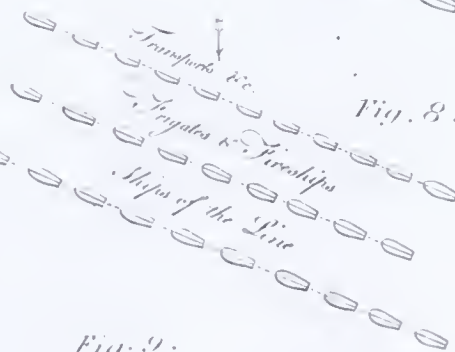 Transports &c.
Fig. 8.
Frigates & Fireships
Ships of the Line
Fig. 9.